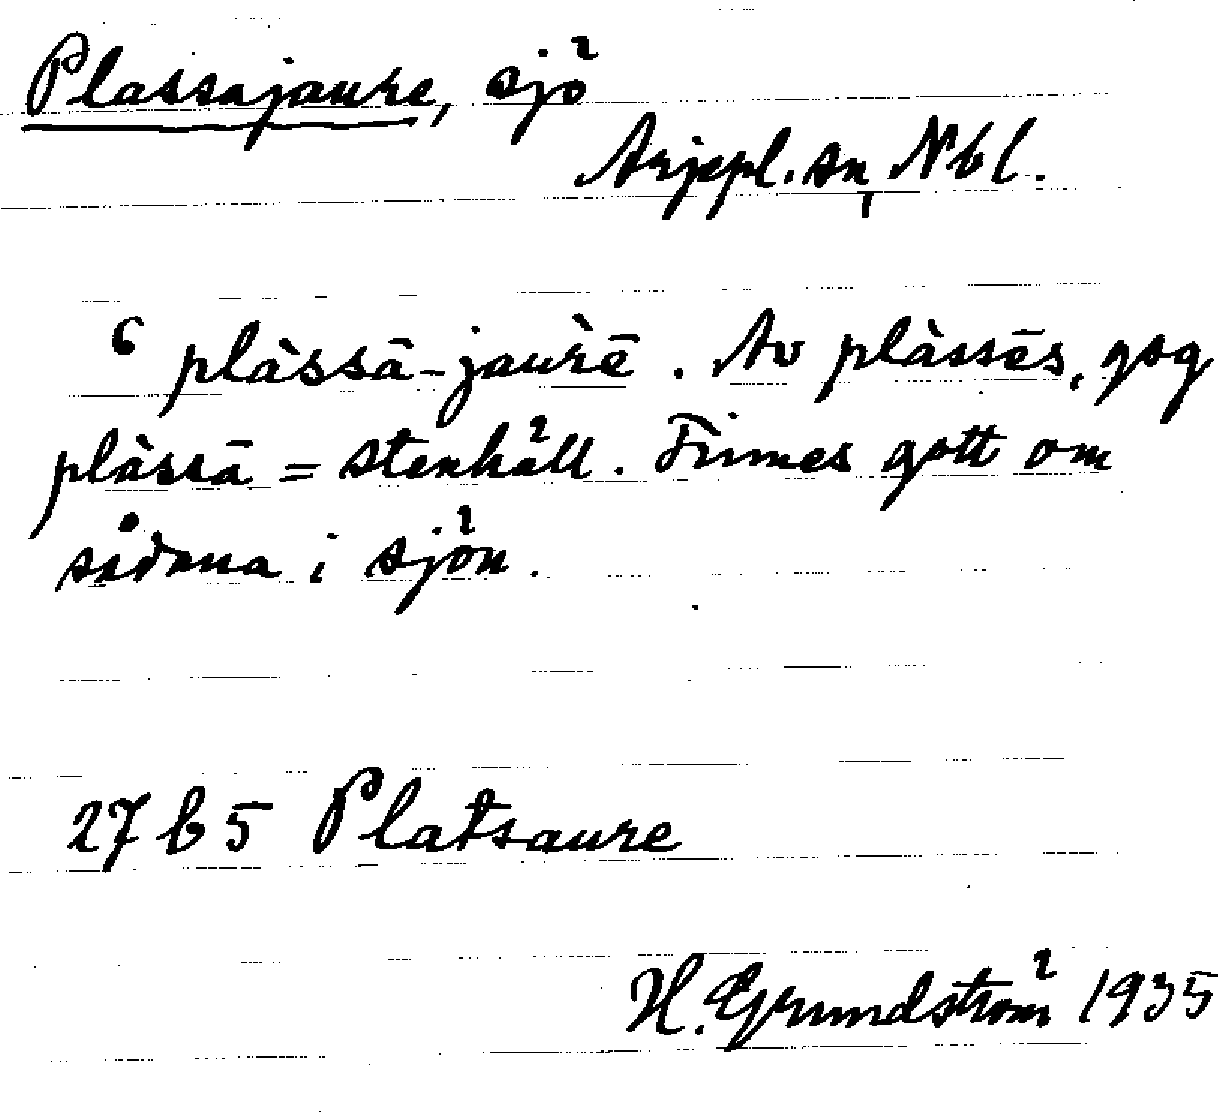 Plassajaure, sjö
Arjepl. sn, Nbl.
6 plàssā-jaùrē. Av plàssēs, gsg
plàssā = stenhäll. Finnes gott om
sådana i sjön.
27 b 5 Platsaure
H. Grundström 1935